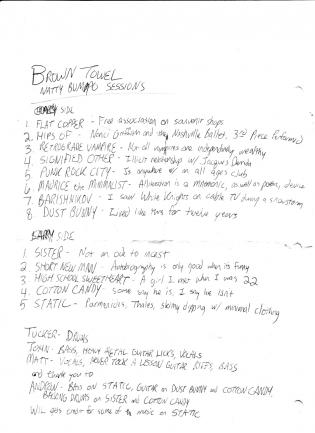 BROWN TOWEL
NATTY BUMPPO SESSIONS
SIDE
1. FLAT COPPER - Free association on souvenir shops
2. HIPS OF - Nanci Griffith and the Nashville Ballet, 3rd Piece Performed
3. RETROGRADE VAMPIRE - Not all vampires are independently wealthy
4. SIGNIFIED OTHER - Illicit relationship w/ Jacques Derrida
5. PUNK ROCK CITY - Is anywhere w/ an all ages club
6. MAURICE the MINIMALIST - Alliteration is a mnemonic, as well as poetic, device
7. BARISHNIKOV - I saw White Knights on cable TV during a snowstorm
8. DUST BUNNY - Lived like this for twelve years
SIDE
1. SISTER - Not an ode to incest
2. SHORT NEW MAN - Autobiography is only good when its funny
3. HIGH SCHOOL SWEETHEART - A girl I met when I was 22
4. COTTON CANDY - some say he is, I say he isnt
5 STATIC - Parmenides, Thales, skinny dipping w/ minimal clothing
TUCKER - DRUMS
JOHN - BASS, HEAVY METAL GUITAR LICKS, VOCALS
MATT - VOCALS, NEVER TOOK A LESSON GUITAR RIFFS, BASS
and thank you to
ANDREW - BASS on STATIC, GUITAR on DUST BUNNY and COTTON CANDY,
BACKING DRUMS on SISTER and COTTON CANDY
WIL gets credit for some of the music on STATIC